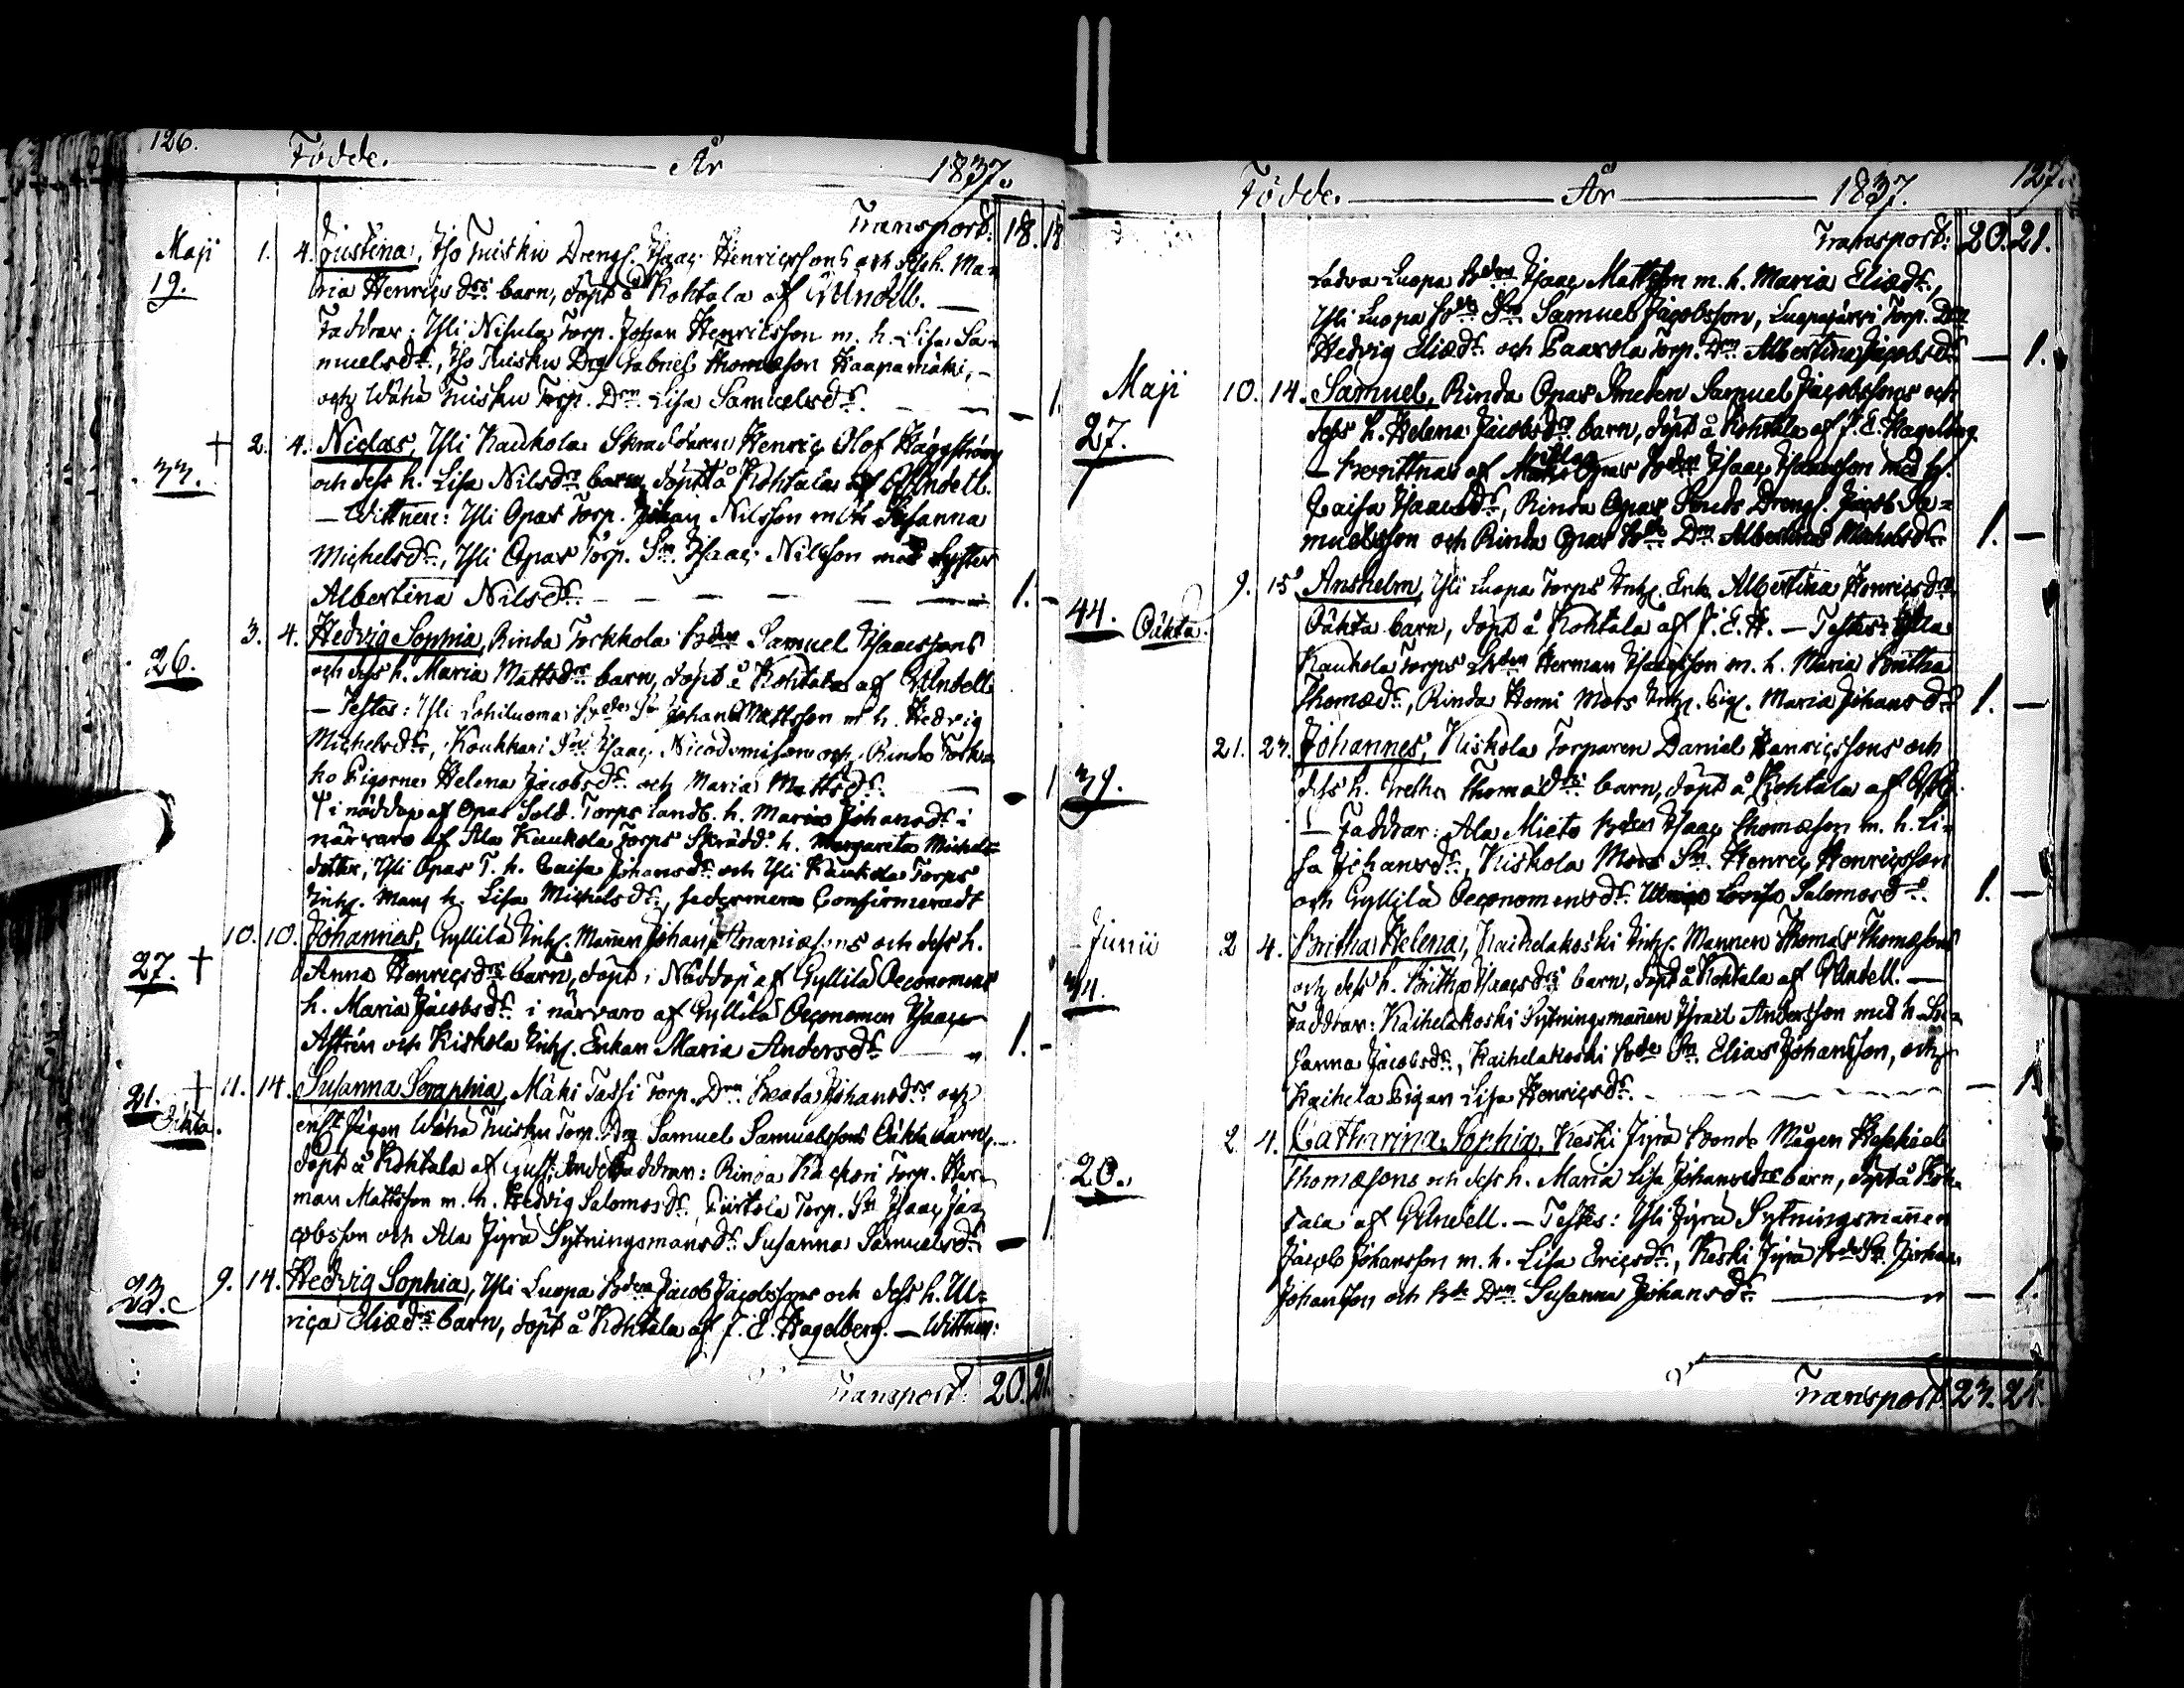 126. Födde. År 1837.
Transport: 18. 18
Maji 1. 4. Justina, Iso Tuisku Drengs. Isaac Henricssons och dess h. Ma-
19. ria Henricsdrs barn, döpt å Kohtala af GAndell. —
Faddrar: Yli Nisula Torp. Johan Henricsson m. h. Lisa Sa-
muelsdr., Iso Tuisku Drg Gabriel Thomæson Haapamäki, –
och Wähä Tuisku Torp. Drn Lisa Samuelsdr. — 1.
+ 2. 4. Niclas, Yli Kaukola Skräddaren Henric Olof Häggströms
33. och dess h. Lisa Nilsdrs barn, döpt å Kohtala af GAndell.
— Wittnen: Yli Opas Torp. Johan Nilsson m h Susanna
Michelsdr., Yli Opas Torp. Sn Isaac Nilsson med Syster
Albertina Nilsdr. — — — — 1. –
3. 4. Hedvig Sophia, Rinda Torkkola Bden Samuel Isaacssons
26. och dess h. Maria Mattsdrs barn, döpt å Kohtala af GAndell
— Testes: Yli Lohiluoma Bde Sn Johan Mattsson m h. Hedvig
Michelsdr., Koukkari Sn Isaac Nicodemison och Rinda Torkko
ko Pigorne Helena Jacobsdr. och Maria Mattsdr. — 1
i nöddop af Opas Sold. Torps Landb. h. Maria Johansdr i
närvaro af Ala Kaukola Torps Skrädd. h. Margareta Michels-
dotter, Yli Opas T. h. Caisa Johansdr och Yli Kaukola Torps
Inhs. Mans h. Lisa Michelsdr., sedermera Confirmeradt
10. 10. Johannes, Gyllilä Inhs. Mannen Johan Ananiæsons och dess h.
27. + Anna Henricsdrs barn, döpt i Nöddop af Gyllilä Oeconomens
h. Maria Jacobsdr. i närvaro af Gyllilä Oeconomen Isaac
och Kiskola Inhs. Enkan Maria Andersdr. — 1. –
21. + 11. 14. Susanna Seraphia, Mäki Passi Torp. Drn Beata Johansdrs och
Oäkta. Wähä Tuisku Torp. Drg Samuel Samuelssons Oäkta barn,
döpt å Kohtala af Faddrar: Rinda Torp. Her-
man Mattsson m. h. Hedvig Salomosdr. Torp. Sn Isaac Ja-
cobsson och Ala Jyrä Sytningsmansdr. Susanna Samuelsdr. — 1.
23. 9. 14. Hedvig Sophia, Yli Luopa Bden Jacob Jacobssons och dess h. Ul-
rica Eliædrs barn, döpt å Kohtala af J. E. Hagelberg. — Wittnen:
Transport: 20. 21.
Födde. År 1837. 127.
Transport: 20. 21.
Ladva Luopa Bden Isaac Mattsson m. h. Maria Eliædr.,
Yli Luopa Bde Sn Samuel Jacobsson, Luopajärvi Torp. Drn
Hedvig Eliædr. och Paavola Torp. Drn Albertina Jacobsdr — 1.
Maji 10. 14. Samuel, Rinda Opas Smeden Samuel Jacobssons och
27. dess h. Helena Jacobsdrs barn, döpt å Kohtala af J. E. Hagelberg.
— Bevittnas af Opas Bden Isaac Isaacsson med h.
Caisa Isaacsdr, Rinda Opas Drengs. Jacob Sa-
muelsson och Rinda Opas Bde Drn Albertina Michelsdr. 1. —
9. 15. Anshelm, Yli Luopa Torps Inhs. Enk. Albertina Henricsdrs
44. Oäkta. Oäkta barn, döpt å Kohtala af J. E. H. — Testes: Yli
Kaukola Torps Herman Isaacsson m. h. Maria Britha
Thomædr, Rinda Homi Mors Inhs. Pig. Maria Johansdr. 1. —
21. 23. Johannes, Kiskola Torparen Daniel Henricssons och
39. dess h. Gretha Thomædrs barn, döpt å Kohtala af
— Faddrar: Ala Mieto Bden Isaac Thomæson m. h. Li-
sa Johansdr., Kiskola Mors Sn Henric Henricsson
och Gyllilä Oeconomensdr. Lovisa Salomosdr. 1. —
Junii 2 4. Britha Helena, Kaihelakoski Inhs. Mannen Thomas Thomæsons
34. och dess h. Britha Isaacsdrs barn, döpt å Kohtala af GAndell. —
Faddrar: Kaihelakoski Sytningsmannen Israel Andersson med h. Su-
sanna Jacobsdr., Kaihelakoski Bde Sn Elias Johansson, och
Kaihela Pigan Lisa Henricsdr. — 1.
2 4. Catharina Sophia, Keski Jyrä Bonde Mågen Hesekiel
20. Thomæsons och dess h. Maria Lisa Johansdrs barn, döpt å Koh-
tala af GAndell. — Testes: Yli Jyrä Sytningsmannen
Jacob Johansson m. h. Lisa Ericsdr., Keski Jyrä Bde Sn Johan
Johansson och Bde Drn Susanna Johansdr. — 1.
Transport 23. 24.